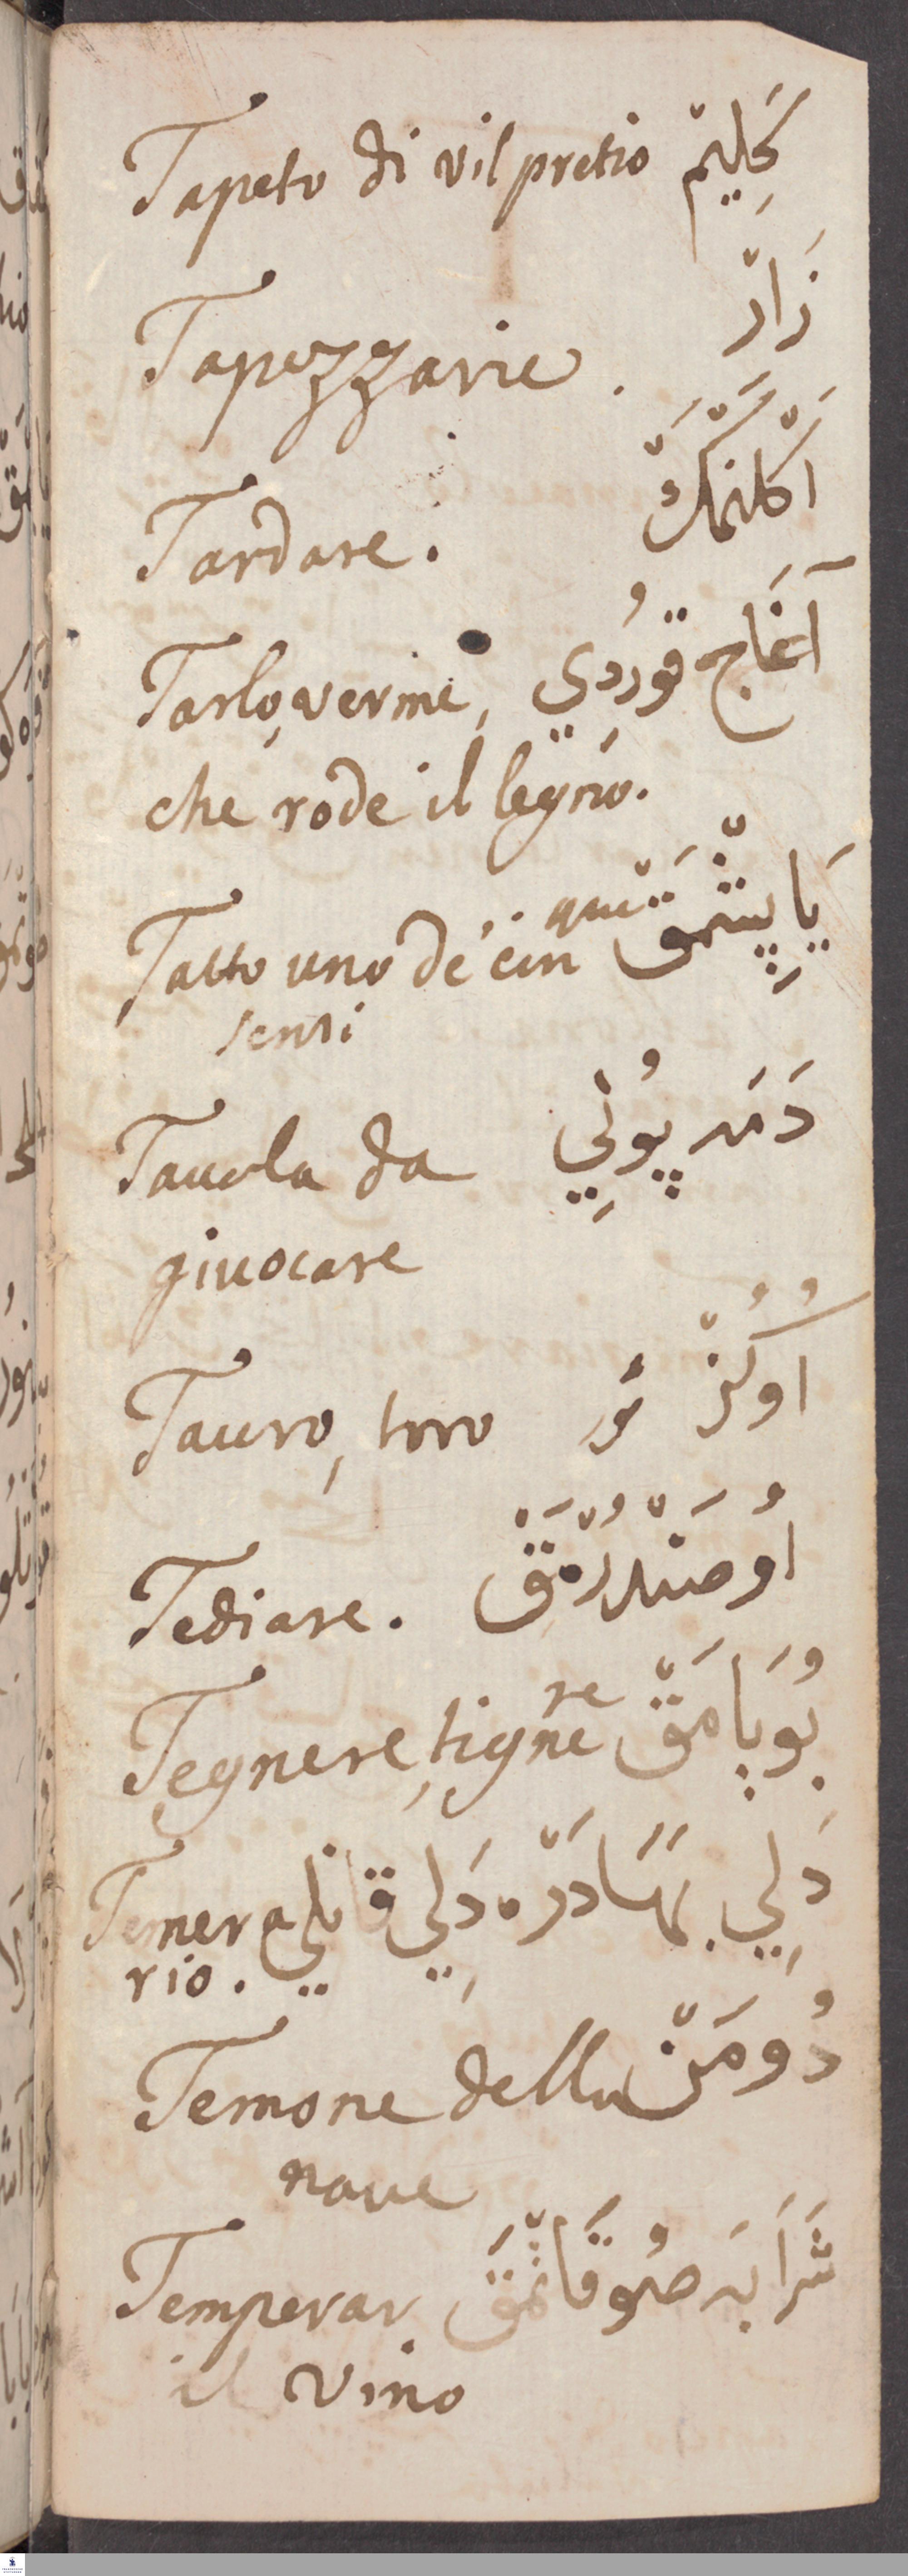 Tapeto di vil pretio كَلِيمْ
Tapezzarie. زَارْ
Tardare. اَكْلَنْمَكْ
Tarlo, verme, آغَاج قُورْدِي
che rode il legno.
Tatto uno de' cin que يَاپِشْمَقْ
sensi
Tauola da دَمَه پُونِي
giuocare
Tauro, toro اُوكُزْ
Tediare. اُوصَنْدُرْمَقْ
Tegnere, tignere بُويَامَقْ
Temera دَلِي بَهَادَرْ دَلِي قَانْلِي
rio.
Temone della دُومَنْ
naue
Temperar شَرَابَه صُو قَاتْمَقْ
il vino